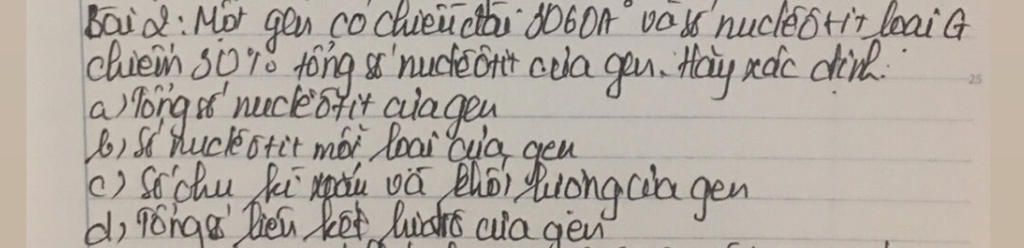 Bài 2: Một gen có chiều dài 3060A° và số nuclêôtit loại G
chiếm 30% tổng số nuclêôtit của gen. Hãy xác định:
a) Tổng số nuclêôtit của gen
b) Số nuclêôtit mỗi loại của gen
c) Số chu kì xoắn và khối lượng của gen
d) Tổng số liên kết hiđrô của gen
25